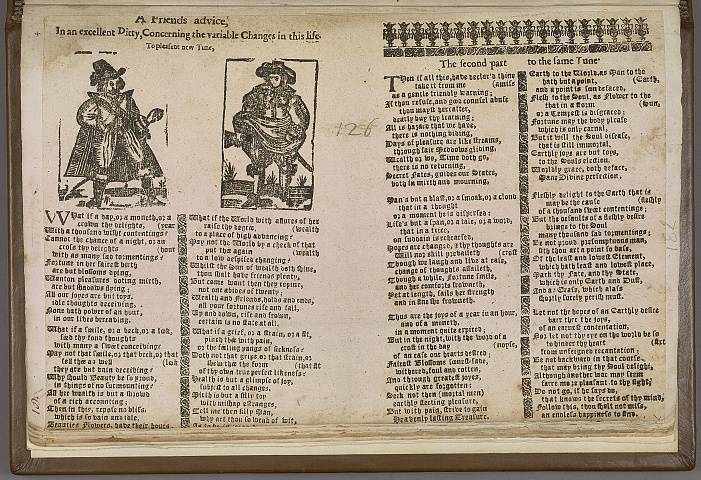 A Friends advice,
In an excellent Ditty, Concerning the variable Changes in this life.
To pleasent new Tune,
WHat if a day, or a moneth, or a
crown thy delights, (year
With a thousand wisht contentings?
Cannot the chance of a night, or an
cross thy delights
with as many sad tormentings?
Fortune in her fairest birth
are but blossoms dying,
Wanton pleasures doting mirth,
are but shadows flying:
All our joyes are but toyes,
idle thoughts deceiving,
None hath power of an hour,
in our lives bereaving.
What if a smile, or a beck, or a look,
feed thy fond thoughts
with many a sweet conceiving?
May not that smile, or that beck, or that
tell thee as well (look
they are but vain deceiving?
Why should Beauty be so proud,
in things of no surmounting?
All her wealth is but a shrowd
of a rich accounting:
Then in this, repose no bliss,
which is so vain and idle,
Beauties Flowers, have their hours
What if the World with allures of her
raise thy degree, (wealth
to a place of high advancing?
May not the World by a check of that
put thee again (wealth
to a low despised changing?
Whilst the Sun of wealth doth shine,
thou shalt have friends plenty,
But come want then they repine,
not one abides of twenty;
Wealth and Friends, holds and ends,
as your fortunes rise and fall,
Up and down, rise and frown,
certain is no state at all.
What if a grief, or a strain, or a fit,
pinch thee with pain,
or the feeling pangs of sickness?
Doth not that gripe or that strain, or
shew thee the form (that fit
of thy own true perfect likeness?
Health is but a glimpse of joy,
subject to all changes.
Mirth is but a silly toy
which mishap estranges,
Tell me then silly Man,
why art thou so weak of wit,
126
The second part to the same Tune.
THen if all this, have declar'd thine
take it from me (amiss
as a gentle friendly warning;
If thou refuse, and good counsel abuse
thou mayst hereafter,
dearly buy thy learning;
All is hazard that we have,
there is nothing biding,
Days of pleasure are like streams,
through fair Meddows gliding,
Wealth or wo, Time doth go,
there is no returning,
Secret Fates, guides our States,
both in mirth and mourning,
Man's but a blast, or a smoak, or a cloud
that in a thought
or a moment he is dispersed:
Life's but a span, or a tale, or a word,
that in a trice,
on suddain is rehearsed:
Hopes are changed, & thy thoughts are
Will nor skill prevaileth (crost
Though we laugh and live at ease,
change of thoughts assaileth,
Though a while, Fortune smile,
and her comforts frowneth,
Yet at length, fails her strength
and in fine she frowneth.
Thus are the joys of a year in an hour,
and of a moneth,
in a moment quite expired;
But in the night, with the word of a
crost in the day (noyse,
of an ease our hearts desired:
Fairest Blossoms soonest fade,
withered, foul and rotten,
And through greatest joyes,
quickly are forgotten:
Seek not then (mortal men)
earthly fleeting pleasure,
But with pain, strive to gain
Heavenly lasting Treasure.
Earth to the World, as Man to the
hath but a point, (Earth,
and a point is soon defaced,
Flesh to the Soul, as Flower to the
that in a storm (Sun,
or a Tempest is disgraced;
Fortune may the body please
which is only carnal,
But it will the Soul disease,
that is still immortal.
Earthly joys are but toys,
to the Souls election,
Worldly grace, doth deface,
Mans Divine perfection.
Fleshly delight to the Earth that is
may be the cause (fleshly
of a thousand sweet contentings;
But the defaults of a fleshly desire
brings to the Soul
many thousand sad tormentings;
Be not proud presumptuous man,
sith thou art a point so base,
Of the least and lowest Element,
which hath least and lowest place,
Mark thy Fate, and thy State,
which is only Earth and Dust,
And as Grass, which alass
shortly surely perish must.
Let not the hopes of an Earthly desire
bars thee the joys,
of an earnest contentation,
Nor let not thy eye on the world be so
to hinder thy heart (fixt
from unfeigned recantation;
Be not backward in that course
that may bring thy Soul delight,
Although another way may seem
farre more pleasant to thy sight;
Do not go, if he says so,
that knows the secrets of thy mind,
Follow this, thou shalt not miss,
an endless happiness to find.